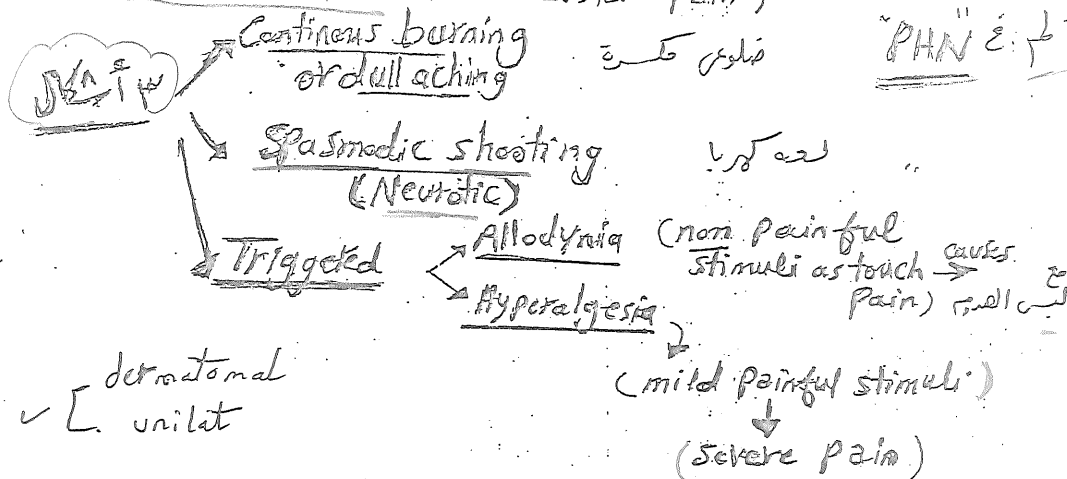 Continous burning
or dull aching
ضلوعي مكسرة
"PHN"
٣ أشكال
Spasmodic shooting
(Neurotic)
Triggered
Allodynia (non painful
stimuli as touch causes
pain)
Hyperalgesia
(mild painful stimuli)
(severe pain)
dermatomal
unilat